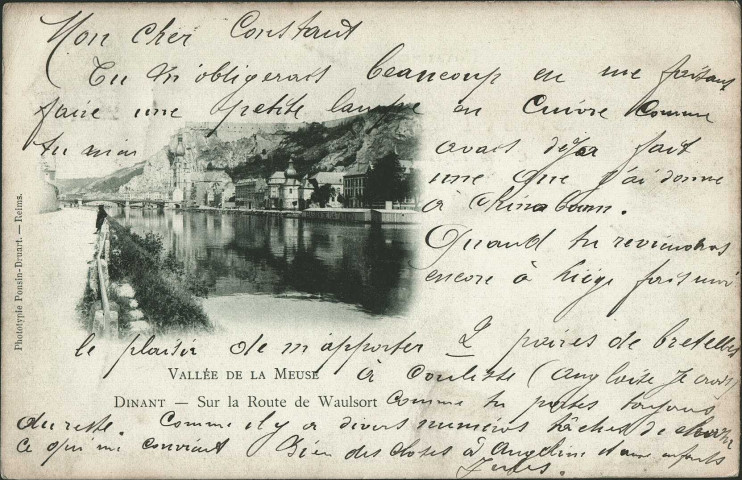 Mon cher Constant
Tu m'obligerais beaucoup en me faisant
faire une petite lampe en Cuivre comme
tu m'en avais déjà fait
une que j'ai donné
à
Quand tu reviendras
encore à Liège fais moi
le plaisir de m'apporter 2 paires de bretelles
VALLÉE DE LA MEUSE
à coulisse (anglaise je crois)
DINANT — Sur la Route de Waulsort
comme tu portes toujours
du reste. Comme il y a divers numéros tâchez de choisir
ce qui me convient Bien des choses à Angeline et aux enfants
Jules.
Phototypie Ponsin-Druart. — Reims.